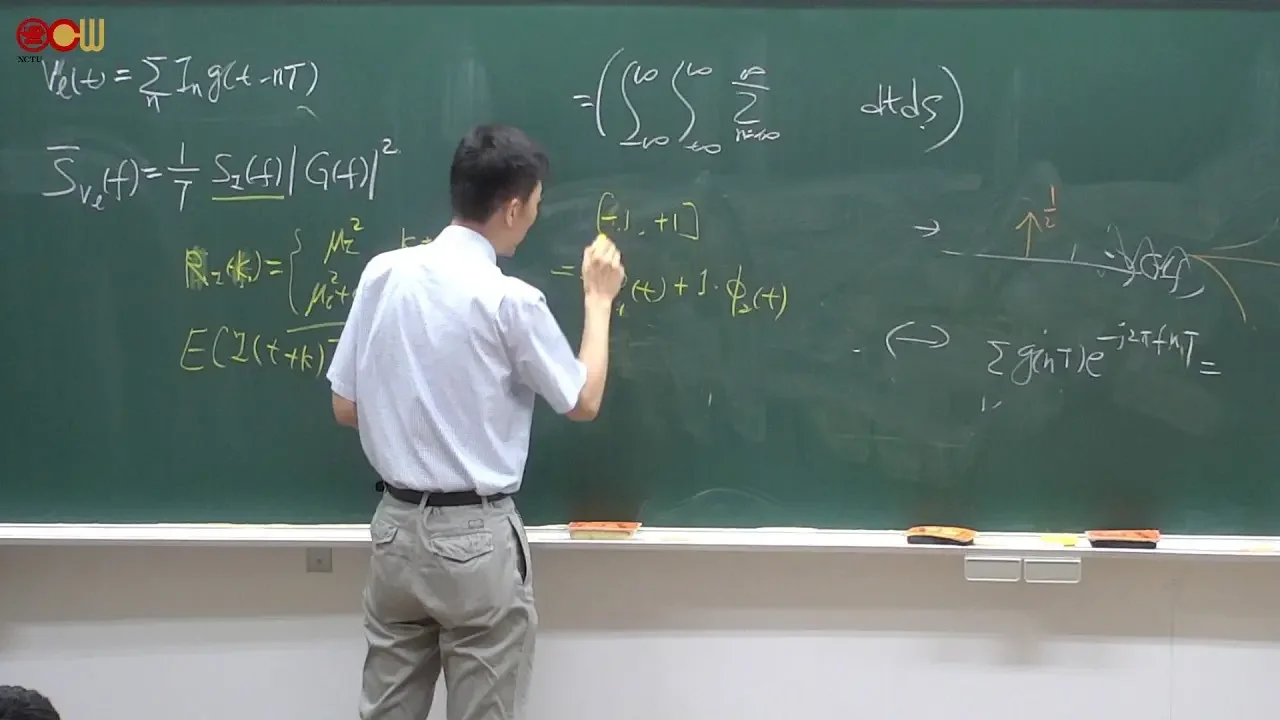 OCW
NCTU
Vℓ(t) = Σ_n I_n g(t-nT)
S̅_{Vℓ}(f) = 1/T S_I(f) |G(f)|²
R_I(k) = { μ_I²
μ_I² +
E(I(t+k)
= (∫_{-∞}^{∞} ∫_{-∞}^{∞} Σ_{n=-∞}^{∞} dt ds)
[-1, +1]
= (t) + 1·ϕ₂(t)
→ 1/2
↔ Σ g(nT) e^{-j2πfnT} =